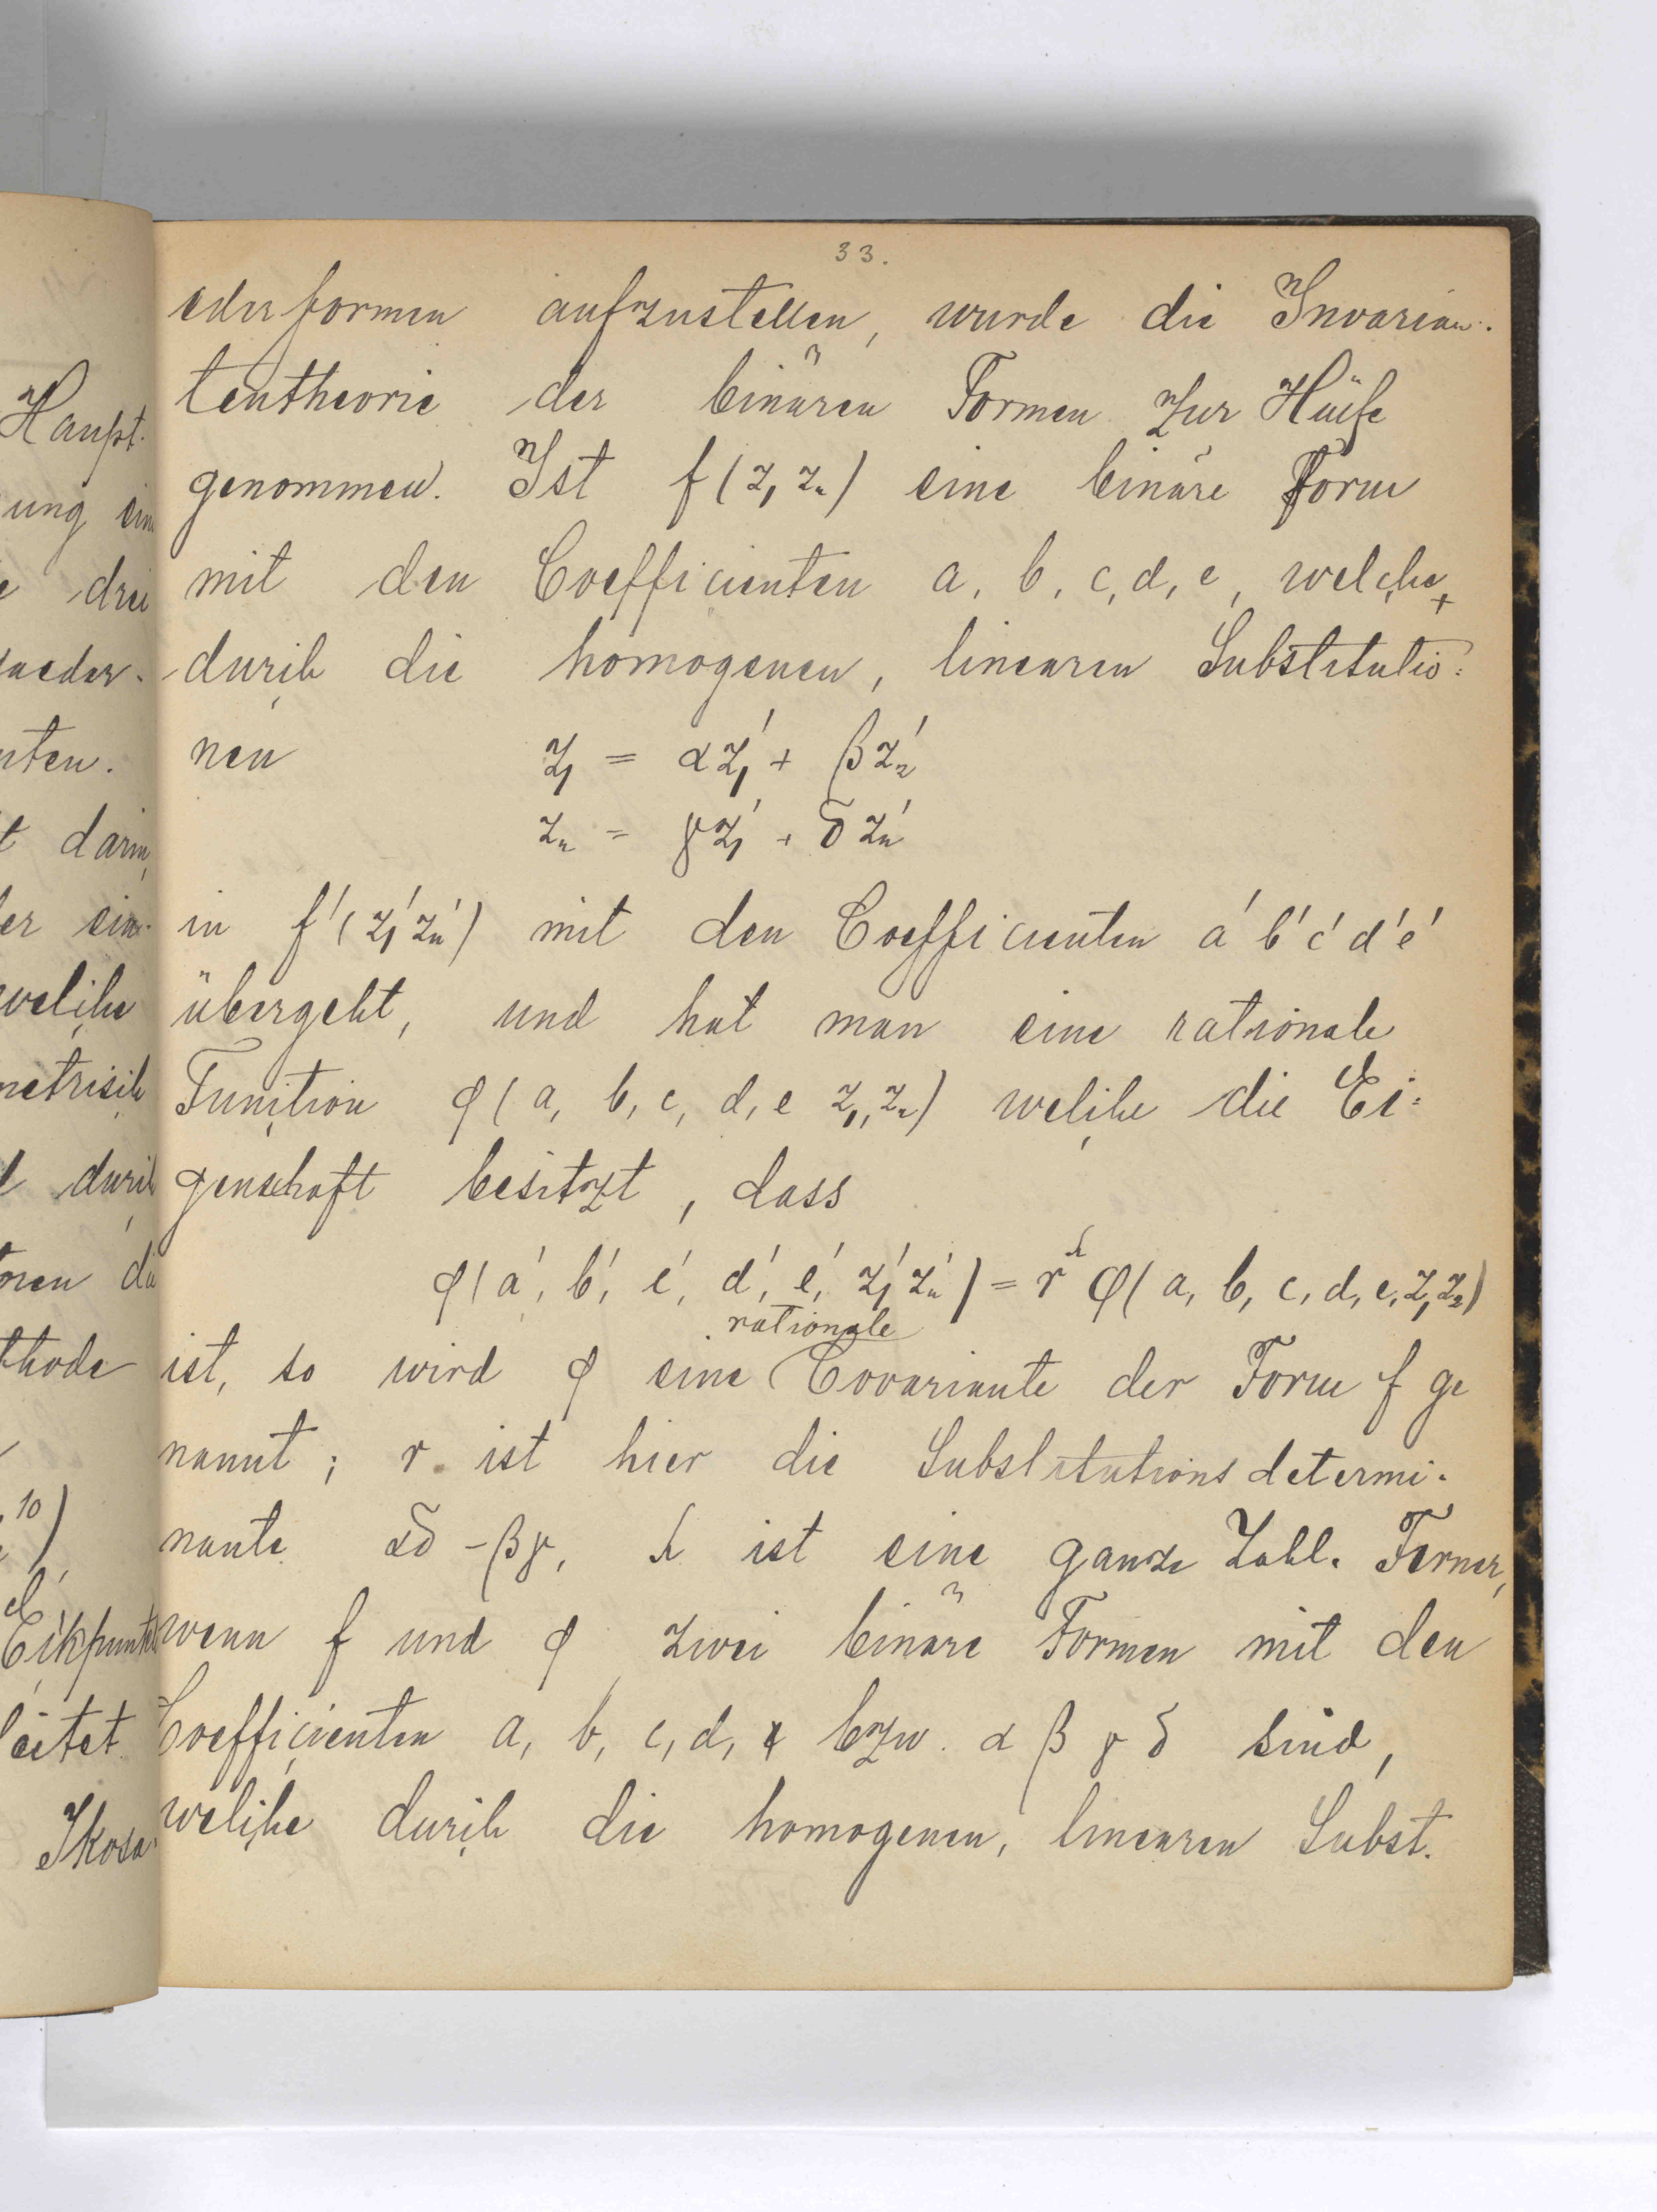 33.
ederformen aufzustellen, wurde die Invarian-
tentheorie der binären Formen zur Hülfe
genommen. Ist f(z₁ z₂) eine binäre Form
mit den Coefficienten a, b, c, d, e, welche
durch die homogenen, linearen Substitutio-
nen z₁ = αz₁' + βz₂'
z₂ = γz₁' + δz₂'
in f'(z₁' z₂') mit den Coefficienten a' b' c' d' e'
übergeht, und hat man eine rationale
Function φ(a, b, c, d, e z₁, z₂) welche die Ei-
genschaft besitzt, dass
φ(a', b', c', d', e', z₁' z₂') = r^λ φ(a, b, c, d, e, z₁ z₂)
rationale
ist, so wird φ eine Covariante der Form f ge
nannt; r ist hier die Substitutionsdetermi-
nante αδ - βγ, λ ist eine ganze Zahl. Ferner,
wenn f und φ zwei binäre Formen mit den
Coefficienten a, b, c, d, e bzw. α β γ δ sind,
welche durch die homogenen, linearen Subst.
Haupt-
ung ein
drei
aeder-
nten.
t darin,
er ein-
welche
metrisch
durch
die
thode
10)
Eckpunkte
leitet.
Ikosa-